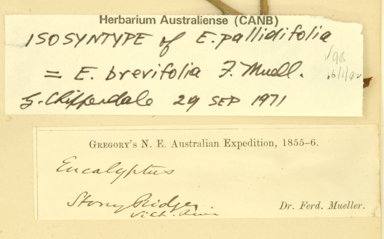 Herbarium Australiense (CANB)
ISOSYNTYPE of E. pallidifolia
= E. brevifolia F. Muell.
G. Chippendale 29 SEP 1971
GREGORY'S N. E. Australian Expedition, 1855–6.
Eucalyptus
Stony Ridges
Vict. River
Dr. Ferd. Mueller.